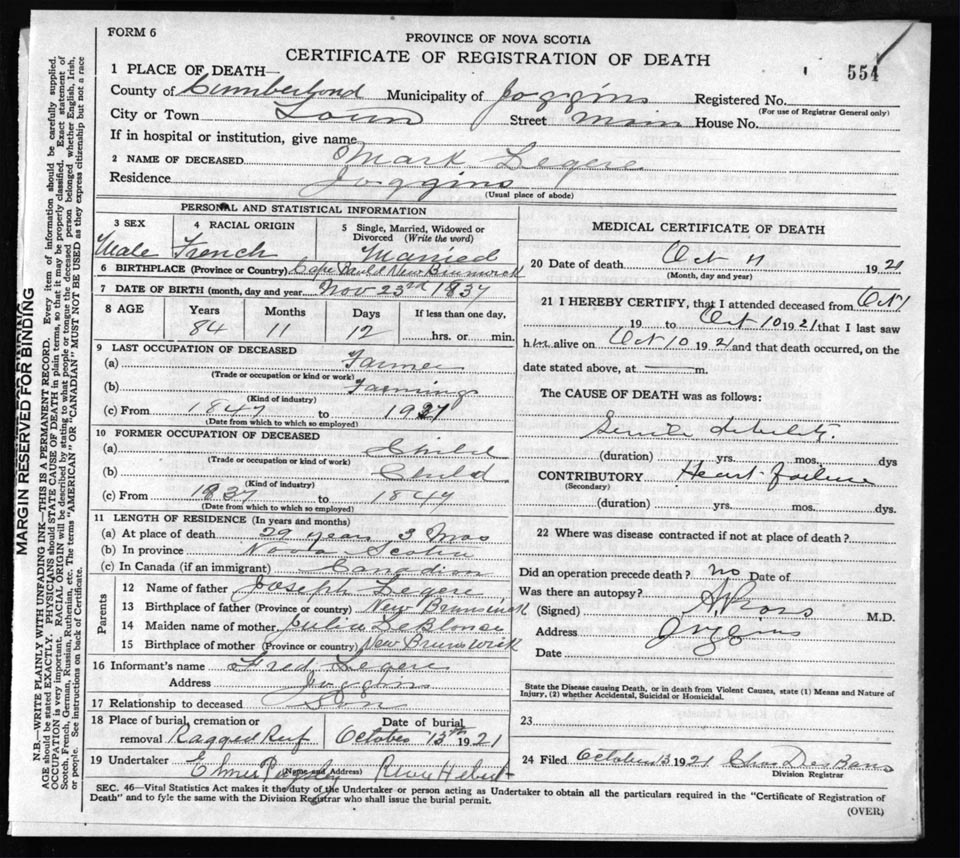 FORM 6
PROVINCE OF NOVA SCOTIA
CERTIFICATE OF REGISTRATION OF DEATH
554
1 PLACE OF DEATH—
County of Cumberland Municipality of Joggins Registered No.
(For use of Registrar General only)
City or Town Town Street Main House No.
If in hospital or institution, give name
2 NAME OF DECEASED Mark Legere
Residence Joggins
(Usual place of abode)
PERSONAL AND STATISTICAL INFORMATION
3 SEX 4 RACIAL ORIGIN 5 Single, Married, Widowed or Divorced (Write the word)
Male French Married
6 BIRTHPLACE (Province or Country) Cape Bauld New Brunswick
7 DATE OF BIRTH (month, day and year) Nov 23rd 1837
8 AGE Years Months Days If less than one day,
84 11 12 hrs. or min.
9 LAST OCCUPATION OF DECEASED
(a) Farmer
(Trade or occupation or kind of work)
(b) Farming
(Kind of industry)
(c) From 1847 to 1921
(Date from which to which so employed)
10 FORMER OCCUPATION OF DECEASED
(a) Child
(Trade or occupation or kind of work)
(b) Child
(Kind of industry)
(c) From 1837 to 1847
(Date from which to which so employed)
11 LENGTH OF RESIDENCE (In years and months)
(a) At place of death 29 years 3 Mos
(b) In province Nova Scotia
(c) In Canada (if an immigrant) Canadian
Parents
12 Name of father Joseph Legere
13 Birthplace of father (Province or country) New Brunswick
14 Maiden name of mother Julia LeBlonc
15 Birthplace of mother (Province or country) New Brunswick
16 Informant's name Fred Legere
Address Joggins
17 Relationship to deceased Son
18 Place of burial, cremation or removal Ragged Reef Date of burial October 13th 1921
19 Undertaker Elmer Hebert
(Name and Address)
MEDICAL CERTIFICATE OF DEATH
20 Date of death Oct 11 1921
(Month, day and year)
21 I HEREBY CERTIFY, that I attended deceased from Oct 1
19 to Oct 10 1921 that I last saw
him alive on Oct 10 1921 and that death occurred, on the
date stated above, at m.
The CAUSE OF DEATH was as follows:
Senile debility.
(duration) yrs. mos. dys
CONTRIBUTORY Heart failure
(Secondary)
(duration) yrs. mos. dys.
22 Where was disease contracted if not at place of death?
Did an operation precede death? no Date of
Was there an autopsy?
(Signed) Ross M.D.
Address Joggins
Date
State the Disease causing Death, or in death from Violent Causes, state (1) Means and Nature of
Injury, (2) whether Accidental, Suicidal or Homicidal.
23
24 Filed October 13 1921 Chas Des Bans
Division Registrar
SEC. 46—Vital Statistics Act makes it the duty of the Undertaker or person acting as Undertaker to obtain all the particulars required in the "Certificate of Registration of
Death" and to fyle the same with the Division Registrar who shall issue the burial permit.
(OVER)
MARGIN RESERVED FOR BINDING
N.B.—WRITE PLAINLY WITH UNFADING INK—THIS IS A PERMANENT RECORD. Every item of information should be carefully supplied.
AGE should be stated EXACTLY. PHYSICIANS should STATE CAUSE OF DEATH in plain terms, so that it may be properly classified. Exact statement of
OCCUPATION is very important. RACIAL ORIGIN will be described by stating to what people or tongue the deceased person belonged whether English, Irish,
Scotch, French, German, Russian, Ruthenian, etc. The terms "AMERICAN" OR "CANADIAN" MUST NOT BE USED as they express citizenship but not a race
or people. See instructions on back of Certificate.